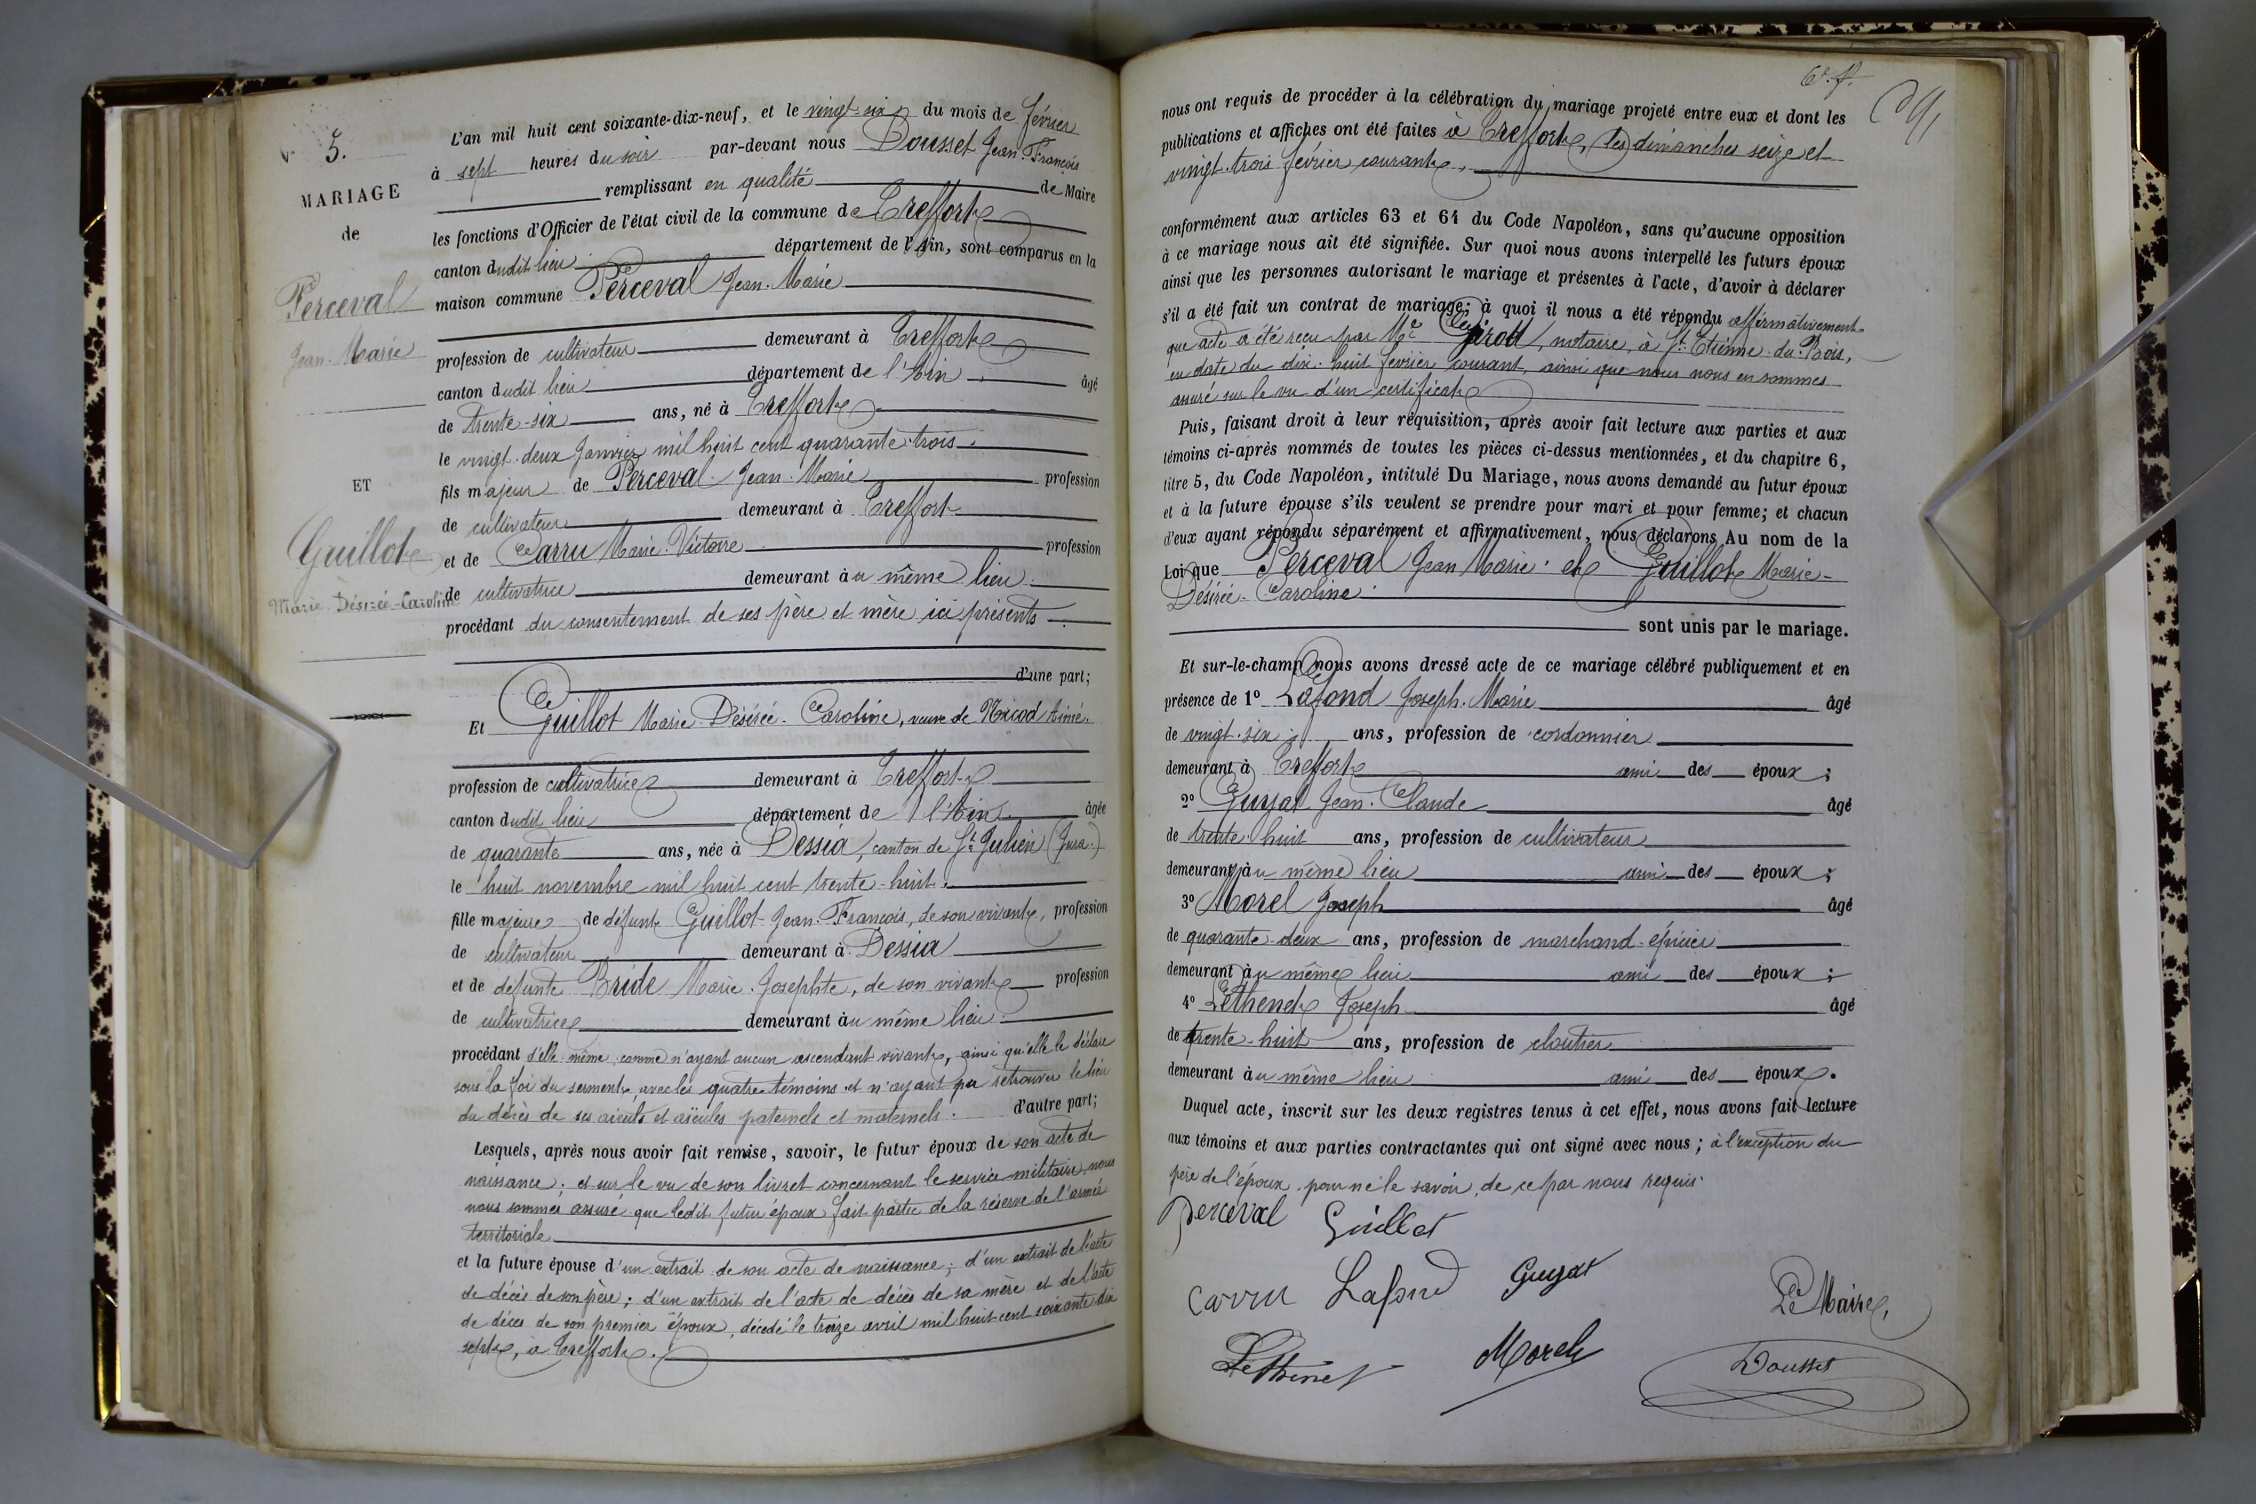 5.
MARIAGE
de
Perceval
Jean-Marie
ET
Guillot
Marie-Désirée-Caroline
L'an mil huit cent soixante-dix-neuf, et le vingt-six du mois de février
à sept heures du soir par-devant nous Dousset Jean-François
remplissant en qualité de Maire
les fonctions d'Officier de l'état civil de la commune de Treffort
canton dudit lieu département de l'Ain, sont comparus en la
maison commune Perceval Jean-Marie
profession de cultivateur demeurant à Treffort
canton dudit lieu département de l'Ain âgé
de trente-six ans, né à Treffort
le vingt-deux Janvier mil huit cent quarante-trois.
fils majeur de Perceval Jean-Marie profession
de cultivateur demeurant à Treffort
et de Carru Marie-Victoire profession
de cultivatrice demeurant au même lieu
procédant du consentement de ses père et mère ici présents
d'une part;
Et Guillot Marie-Désirée-Caroline, veuve de Nicod Aimé.
profession de cultivatrice demeurant à Treffort
canton dudit lieu département de l'Ain âgée
de quarante ans, née à Dessia, canton de St Julien (Jura)
le huit novembre mil huit cent trente-huit.
fille majeure de défunt Guillot Jean-François, de son vivant, profession
de cultivateur demeurant à Dessia
et de défunte Bride Marie-Josephte, de son vivant profession
de cultivatrice demeurant au même lieu
procédant d'elle-même comme n'ayant aucun ascendant vivant, ainsi qu'elle le déclare
sous la foi du serment, avec les quatre témoins et n'ayant pu retrouver le lieu
du décès de ses aïeuls et aïeules paternels et maternels. d'autre part;
Lesquels, après nous avoir fait remise, savoir, le futur époux de son acte de
naissance; et sur le vu de son livret concernant le service militaire, nous
nous sommes assuré que ledit futur époux fait partie de la réserve de l'armée
territoriale
et la future épouse d'un extrait de son acte de naissance; d'un extrait de l'acte
de décès de son père; d'un extrait de l'acte de décès de sa mère et de l'acte
de décès de son premier époux, décédé le treize avril mil huit cent soixante dix
sept, à Treffort.
nous ont requis de procéder à la célébration du mariage projeté entre eux et dont les
publications et affiches ont été faites à Treffort, les dimanches seize et
vingt-trois février courant,
conformément aux articles 63 et 64 du Code Napoléon, sans qu'aucune opposition
à ce mariage nous ait été signifiée. Sur quoi nous avons interpellé les futurs époux
ainsi que les personnes autorisant le mariage et présentes à l'acte, d'avoir à déclarer
s'il a été fait un contrat de mariage; à quoi il nous a été répondu affirmativement
que acte a été reçu par Me Girod, notaire, à St-Etienne-du-Bois,
en date du dix-huit février courant, ainsi que nous nous en sommes
assuré sur le vu d'un certificat
Puis, faisant droit à leur réquisition, après avoir fait lecture aux parties et aux
témoins ci-après nommés de toutes les pièces ci-dessus mentionnées, et du chapitre 6,
titre 5, du Code Napoléon, intitulé Du Mariage, nous avons demandé au futur époux
et à la future épouse s'ils veulent se prendre pour mari et pour femme; et chacun
d'eux ayant répondu séparément et affirmativement, nous déclarons Au nom de la
Loi que Perceval Jean Marie et Guillot Marie-
Désirée-Caroline
sont unis par le mariage.
Et sur-le-champ nous avons dressé acte de ce mariage célébré publiquement et en
présence de 1º Lafond Joseph-Marie âgé
de vingt-six ans, profession de cordonnier
demeurant à Treffort ami des époux;
2º Guyat Jean-Claude âgé
de trente-huit ans, profession de cultivateur
demeurant au même lieu ami des époux;
3º Morel Joseph âgé
de quarante-deux ans, profession de marchand-épicier
demeurant au même lieu ami des époux;
4º Léthenet Joseph âgé
de trente-huit ans, profession de cloutier
demeurant au même lieu ami des époux.
Duquel acte, inscrit sur les deux registres tenus à cet effet, nous avons fait lecture
aux témoins et aux parties contractantes qui ont signé avec nous; à l'exception du
père de l'époux pour ne le savoir, de ce par nous requis.
Perceval Guillot
Carru Lafond Guyat
Le Maire,
Léthenet Morel Dousset